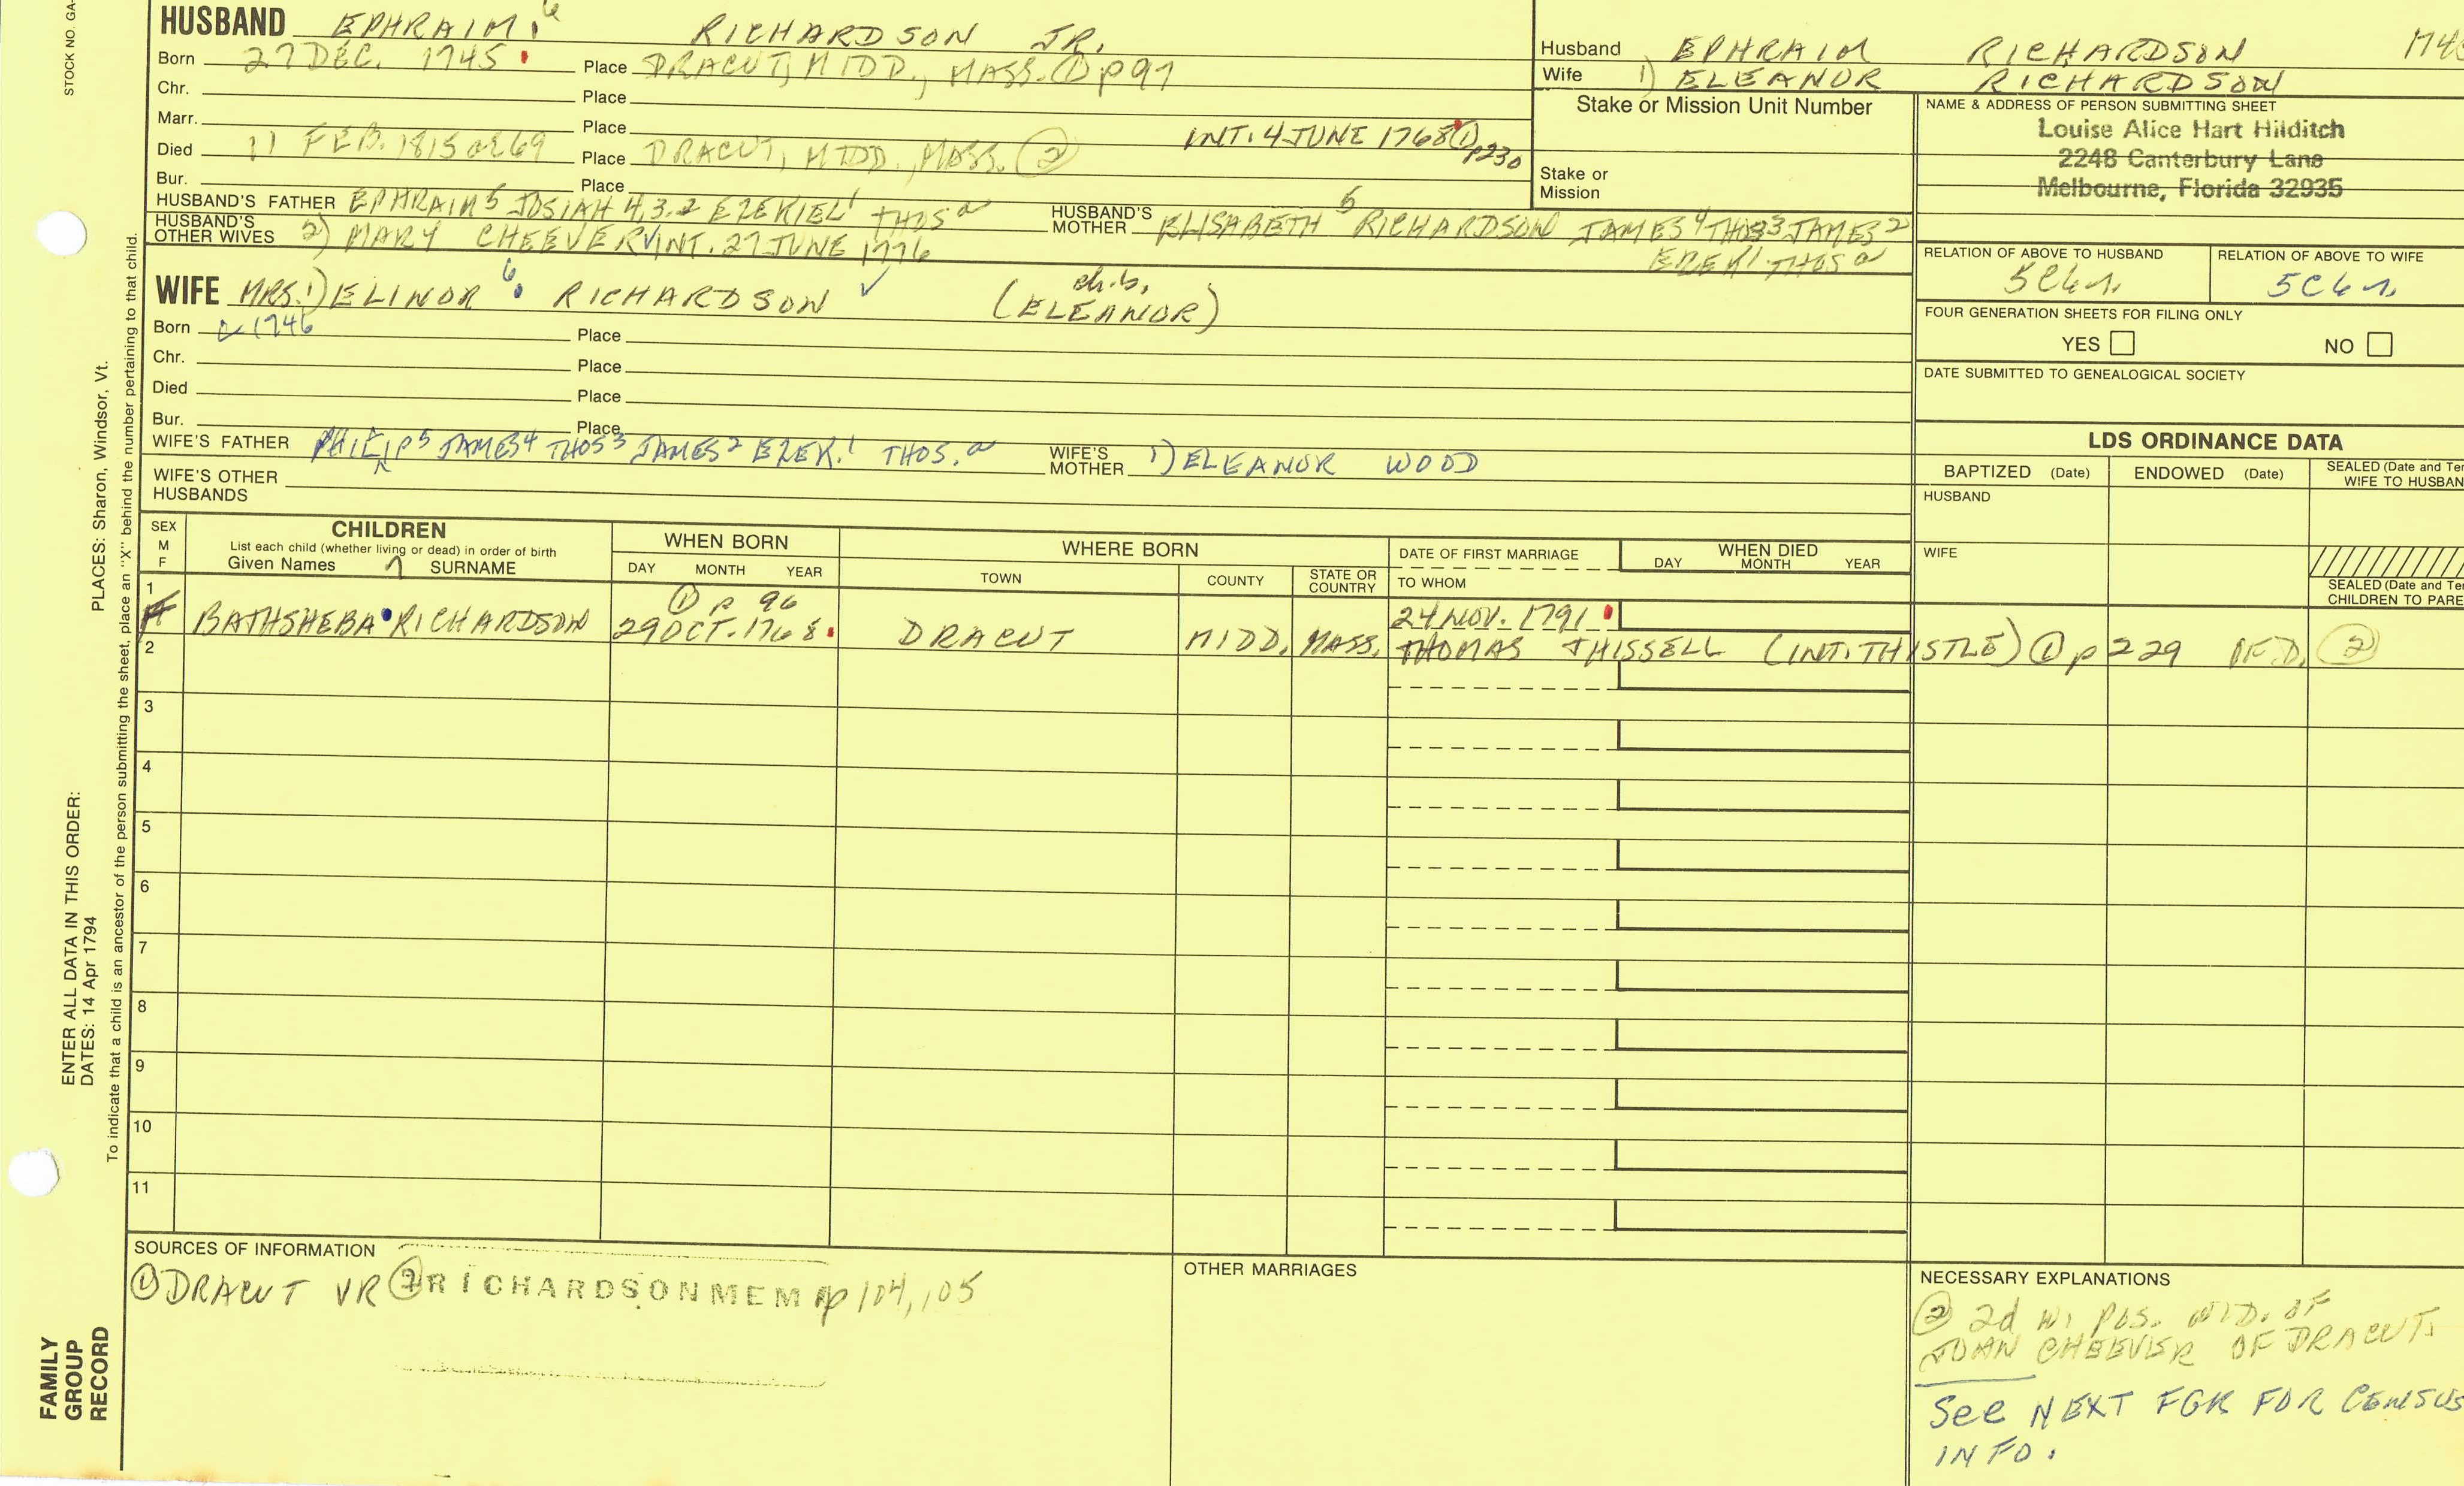 STOCK NO. GA-
HUSBAND EPHRAIM 6 RICHARDSON JR.
Born 27 DEC. 1745 Place DRACUT, MIDD., MASS. ① p97
Chr. Place
Marr. Place INT. 4 JUNE 1768 ① p230
Died 11 FEB. 1815 Æ 69 Place DRACUT, MIDD., MASS. ②
Bur. Place
HUSBAND'S FATHER EPHRAIM 5 JOSIAH 4,3,2 EZEKIEL 1 THOS a HUSBAND'S MOTHER ELISABETH 5 RICHARDSON JAMES 4 THOS 3 JAMES 2
EZEK 1 THOS a
HUSBAND'S OTHER WIVES 2) MARY CHEEVER √ INT. 27 JUNE 1776
WIFE MRS. 1) ELINOR 6 RICHARDSON ✓ ch.b. (ELEANOR)
Born 1746 Place
Chr. Place
Died Place
Bur. Place
WIFE'S FATHER PHILIP 5 JAMES 4 THOS 3 JAMES 2 EZEK. 1 THOS. a WIFE'S MOTHER 1) ELEANOR WOOD
WIFE'S OTHER HUSBANDS
Husband EPHRAIM RICHARDSON
Wife 1) ELEANOR RICHARDSON
Stake or Mission Unit Number
Stake or
Mission
NAME & ADDRESS OF PERSON SUBMITTING SHEET
Louise Alice Hart Hilditch
2248 Canterbury Lane
Melbourne, Florida 32935
RELATION OF ABOVE TO HUSBAND RELATION OF ABOVE TO WIFE
5C6r. 5C6r.
FOUR GENERATION SHEETS FOR FILING ONLY
YES NO
DATE SUBMITTED TO GENEALOGICAL SOCIETY
LDS ORDINANCE DATA
BAPTIZED (Date) ENDOWED (Date) SEALED (Date and Te
WIFE TO HUSBAN
HUSBAND
WIFE
SEALED (Date and Te
CHILDREN TO PARE
SEX
M
F
CHILDREN
List each child (whether living or dead) in order of birth
Given Names SURNAME
WHEN BORN
DAY MONTH YEAR
WHERE BORN
TOWN COUNTY STATE OR COUNTRY
DATE OF FIRST MARRIAGE
TO WHOM
WHEN DIED
DAY MONTH YEAR
1
① p 96
F BATHSHEBA RICHARDSON 29 OCT. 1768 DRACUT MIDD. MASS. 24 NOV. 1791
THOMAS THISSELL (INT. THISTLE) ① p 229 ②
2
3
4
5
6
7
8
9
10
11
SOURCES OF INFORMATION
① DRACUT VR ② RICHARDSON MEM p 104, 105
OTHER MARRIAGES
NECESSARY EXPLANATIONS
② 2d W. POS. WID. OF
JOHN CHEEVER OF DRACUT.
See NEXT FGR FOR CENSUS
INFO.
PLACES: Sharon, Windsor, Vt.
To indicate that a child is an ancestor of the person submitting the sheet, place an "X" behind the number pertaining to that child.
ENTER ALL DATA IN THIS ORDER:
DATES: 14 Apr 1794
FAMILY
GROUP
RECORD